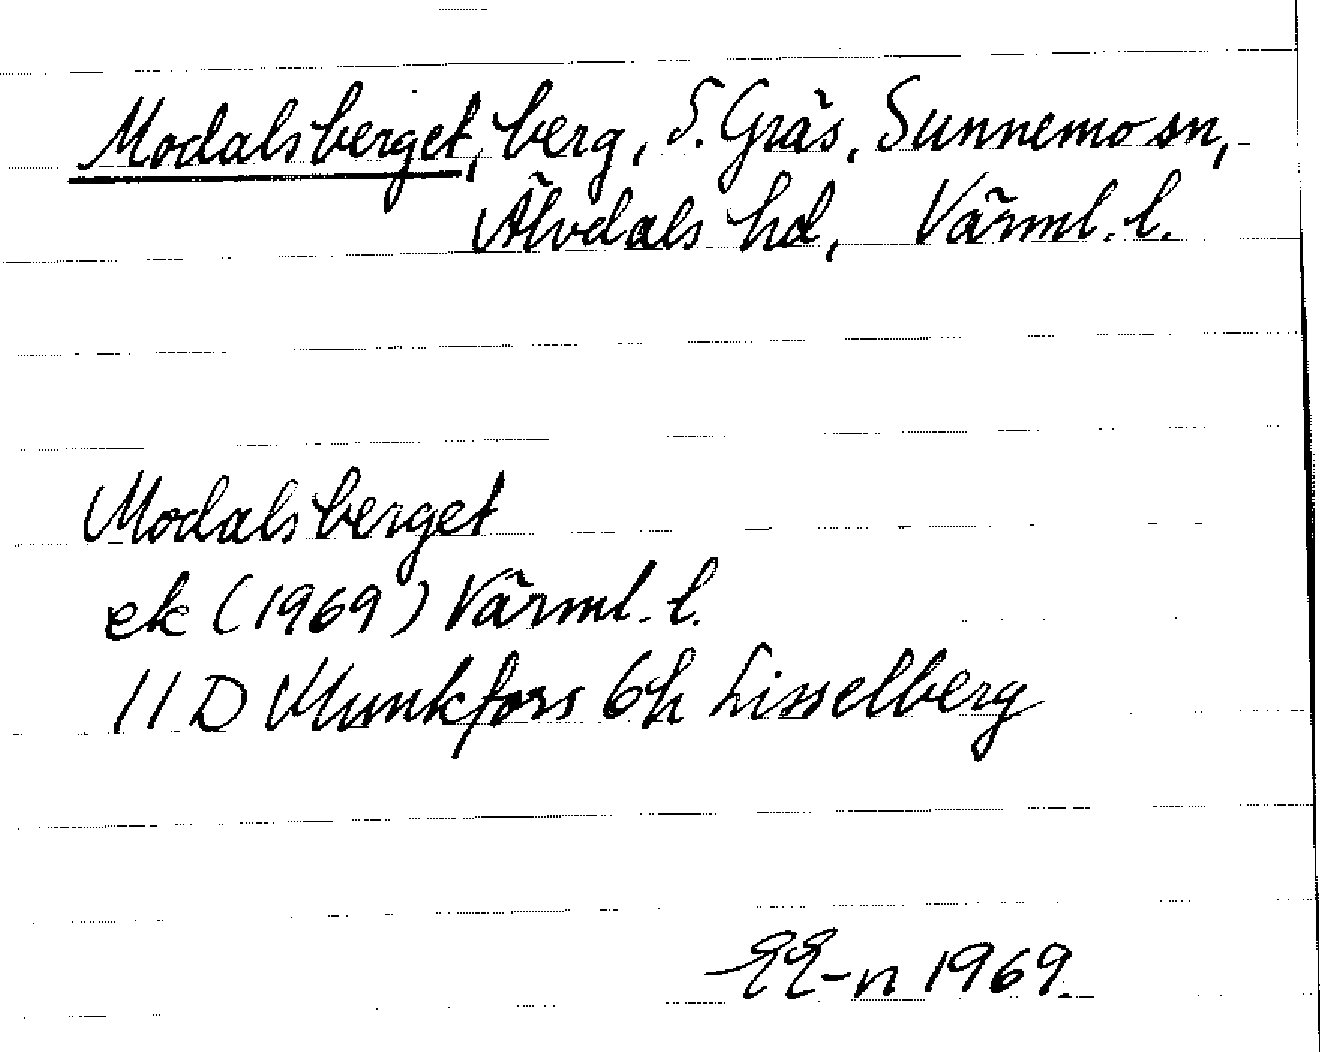 Modalsberget, berg, S. Gräs, Sunnemo sn,
Älvdals hd, Värml. l.
Modalsberget
ek (1969) Värml. l.
11 D Munkfors 6h Lisselberg
EE-n 1969.